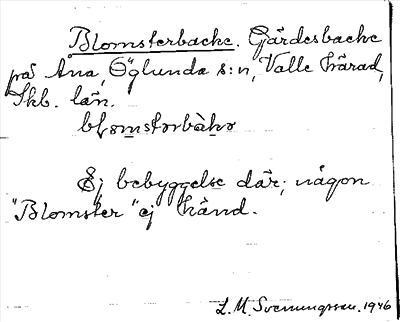 Blomsterbacke. Gärdesbacke
på Åna, Öglunda s:n, Valle härad,
Skb. län.
blomstərbàkə
Ej bebyggelse där; någon
"Blomster" ej känd.
L. M. Svenungsson. 1946